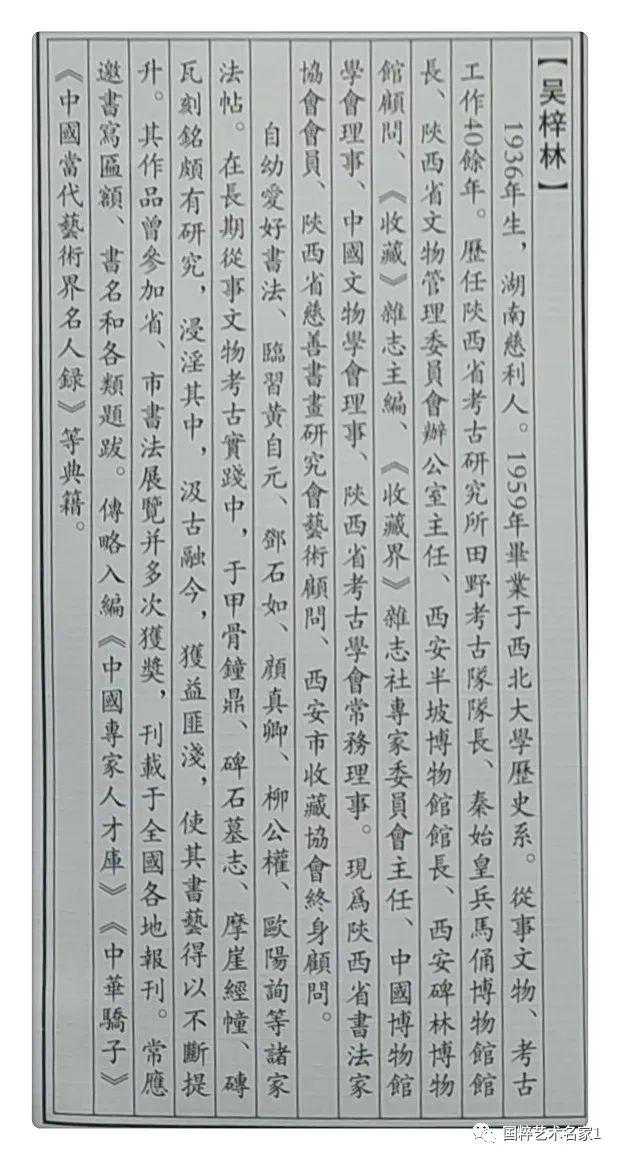 【吴梓林】
1936年生，湖南慈利人。1959年畢業于西北大學歷史系。從事文物、考古
工作40餘年。歷任陝西省考古研究所田野考古隊隊長、秦始皇兵馬俑博物館館
長、陝西省文物管理委員會辦公室主任、西安半坡博物館館長、西安碑林博物
館顧問、《收藏》雜志主編、《收藏界》雜志社專家委員會主任、中國博物館
學會理事、中國文物學會理事、陝西省考古學會常務理事。現爲陝西省書法家
協會會員、陝西省慈善書畫研究會藝術顧問、西安市收藏協會終身顧問。
自幼愛好書法、臨習黄自元、鄧石如、顔真卿、柳公權、歐陽詢等諸家
法帖。在長期從事文物考古實踐中，于甲骨鐘鼎、碑石墓志、摩崖經幢、磚
瓦刻銘頗有研究，浸淫其中，汲古融今，獲益匪淺，使其書藝得以不斷提
升。其作品曾參加省、市書法展覽并多次獲獎，刊載于全國各地報刊。常應
邀書寫匾額、書名和各類題跋。傳略入編《中國專家人才庫》《中華驕子》
《中國當代藝術界名人録》等典籍。
国粹艺术名家1